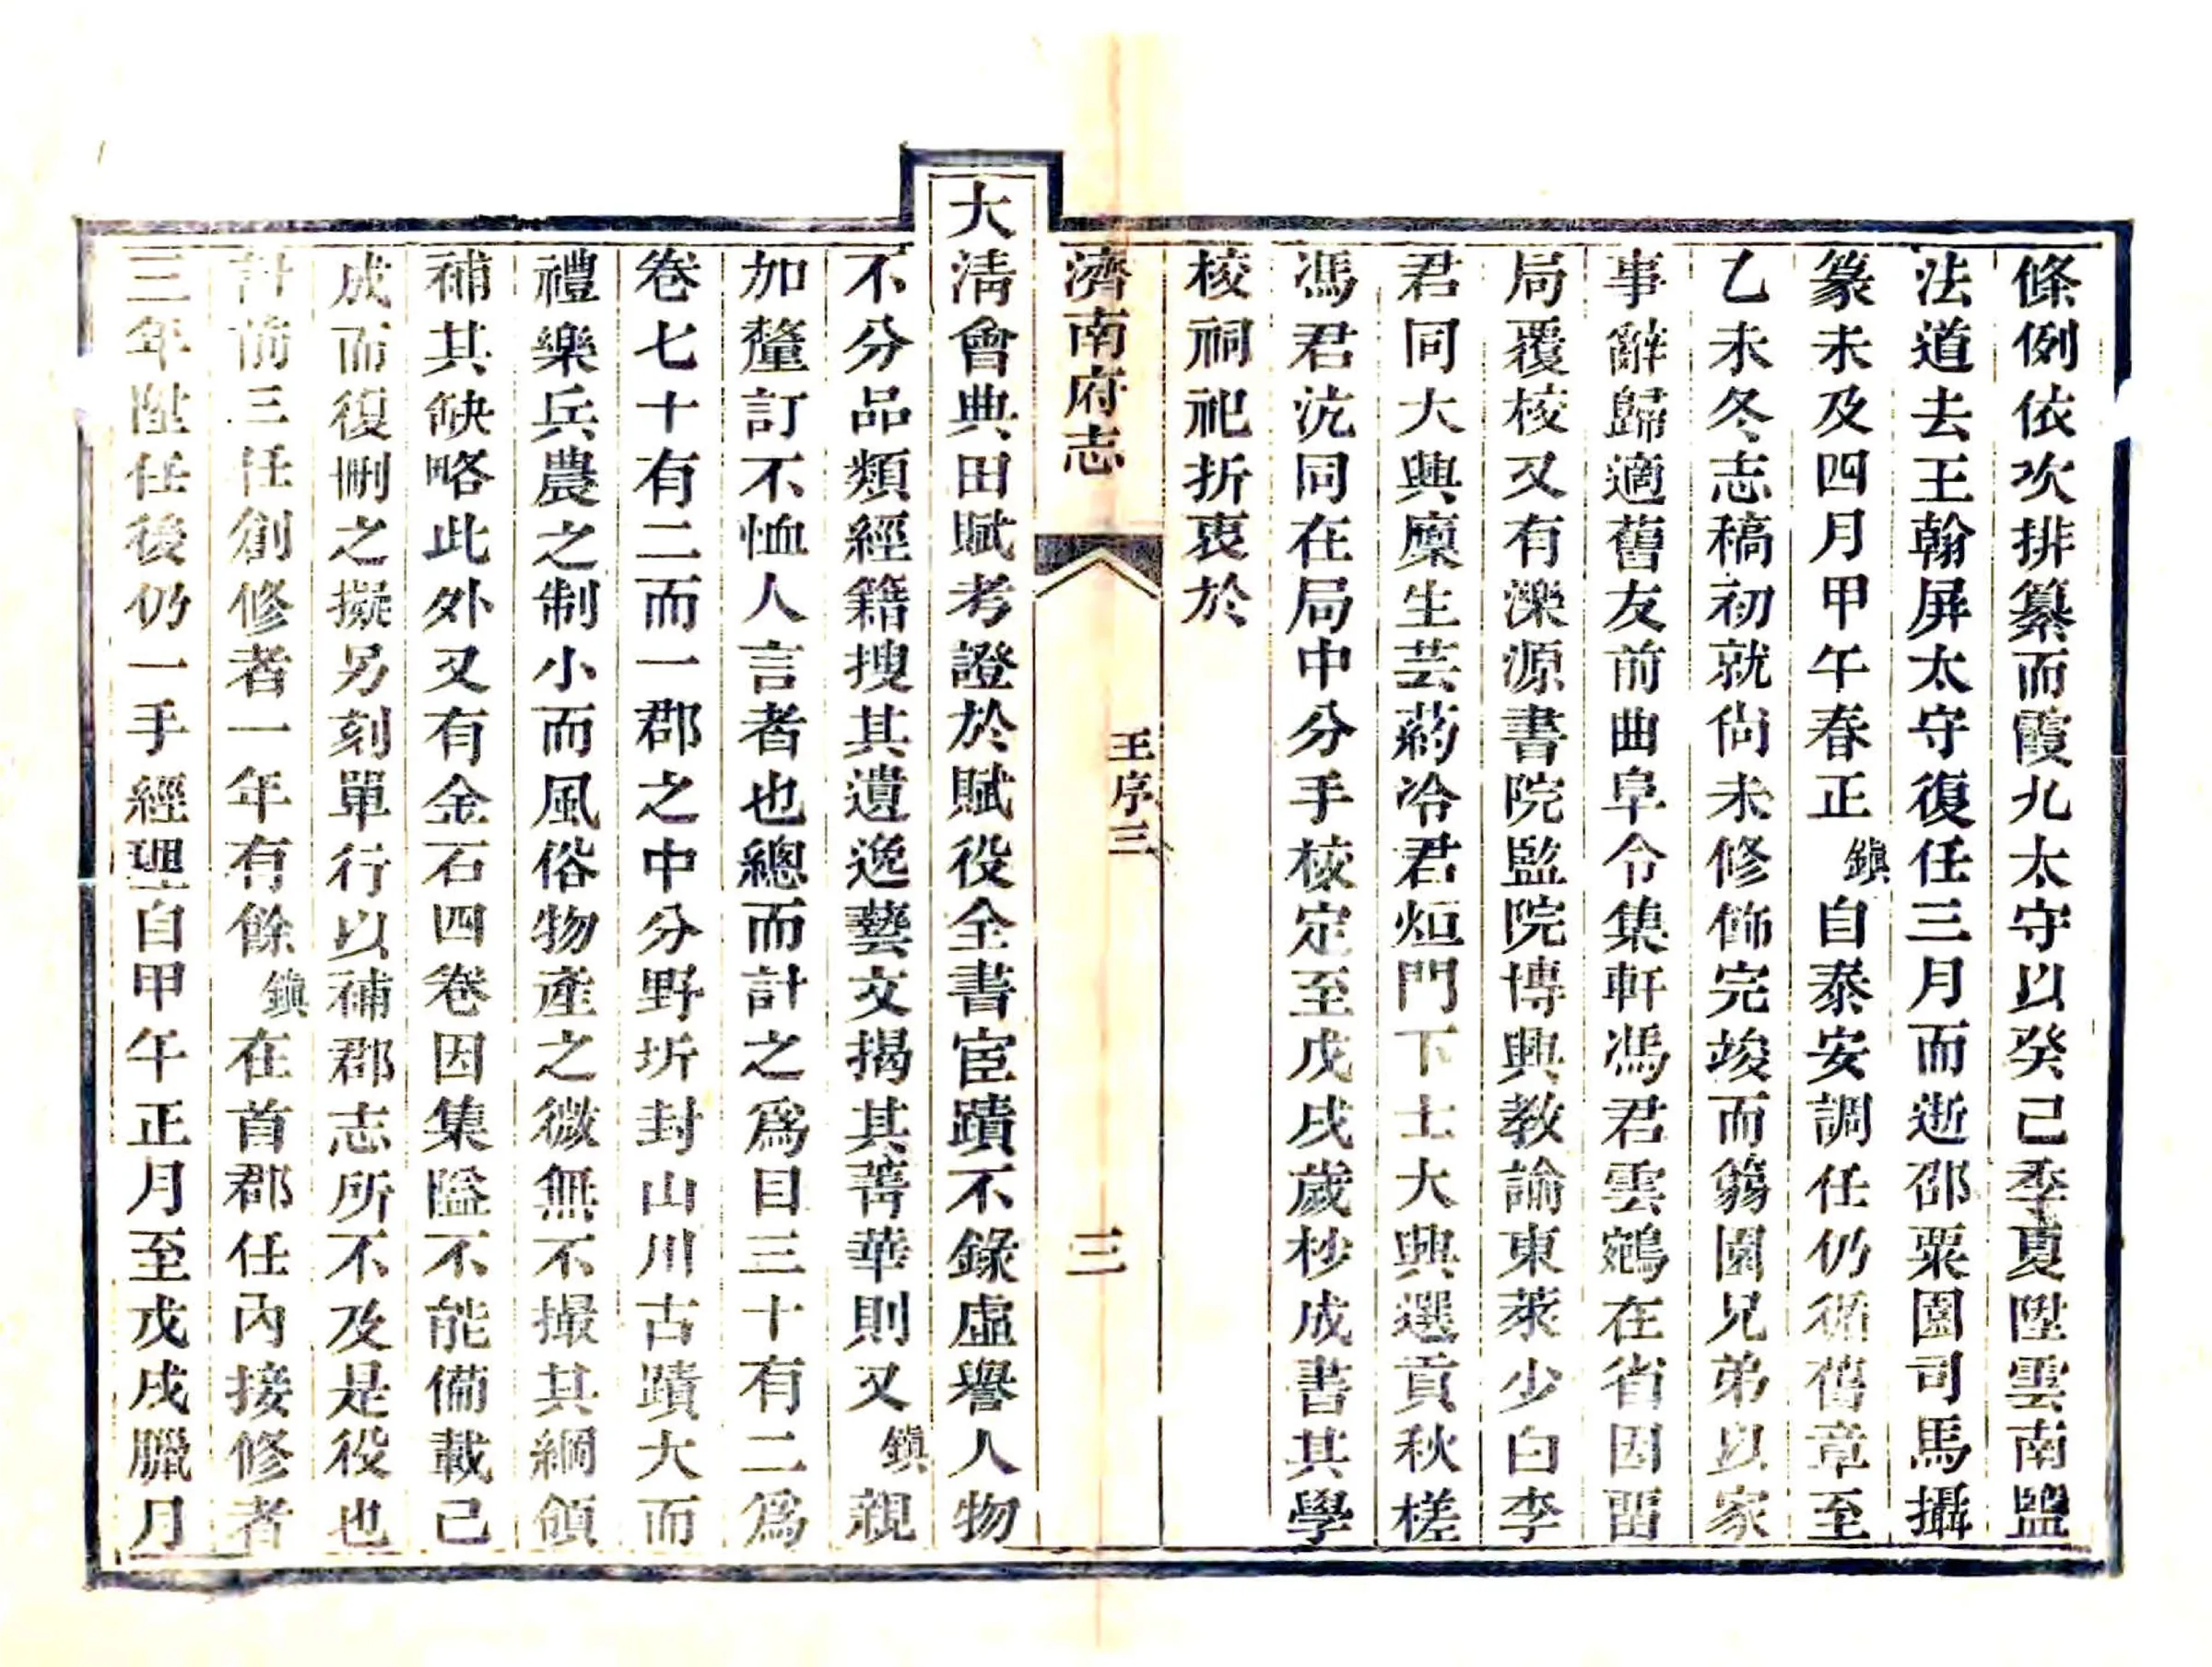 條例依次排纂而霞九太守以癸己季夏陞雲南鹽
法道去王翰屏太守復任三月而逝邵粟園司馬攝
篆未及四月甲午春正鎮自泰安調任仍循舊章至
乙未冬志稿初就尙未修飾完竣而蒻園兄弟以家
事辭歸適舊友前曲阜令集軒馮君雲鵷在省因畱
局覆校又有濼源書院監院博興教諭東萊少白李
君同大興廩生芸葯冷君烜門下士大興選貢秋槎
馮君沆同在局中分手校定至戊戌歲杪成書其學
校祠祀折衷於
濟南府志
王序三
三
大淸會典田賦考證於賦役全書宦蹟不錄虛譽人物
不分品類經籍搜其遺逸藝文揭其菁華則又鎮親
加釐訂不恤人言者也總而計之爲目三十有二爲
卷七十有二而一郡之中分野圻封山川古蹟大而
禮樂兵農之制小而風俗物產之微無不撮其綱領
補其缺略此外又有金石四卷因集隘不能備載己
成而復刪之擬另刻單行以補郡志所不及是役也
計前三任創修者一年有餘鎮在首郡任內接修者
三年陞任後仍一手經理自甲午正月至戊戌臘月